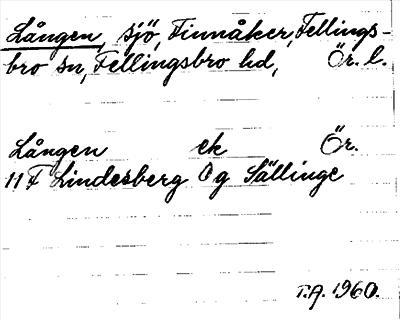 Lången, sjö, Finnåker, Fellings-
bro sn, Fellingsbro hd, Ör. l.
Lången ek Ör.
11 F Lindesberg Og Sällinge
T.A. 1960.